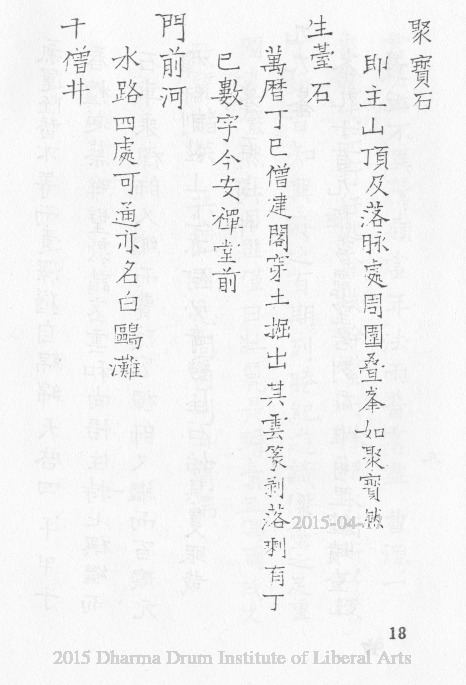 聚寶石
即主山頂及落脉處周圍叠峯如聚寶然
生臺石
萬曆丁巳僧建閣穿土掘出其雲篆剥落剩有丁
巳數字今安禪堂前
門前河
水路四處可通亦名白鷗灘
千僧井
2015-04-
18
2015 Dharma Drum Institute of Liberal Arts